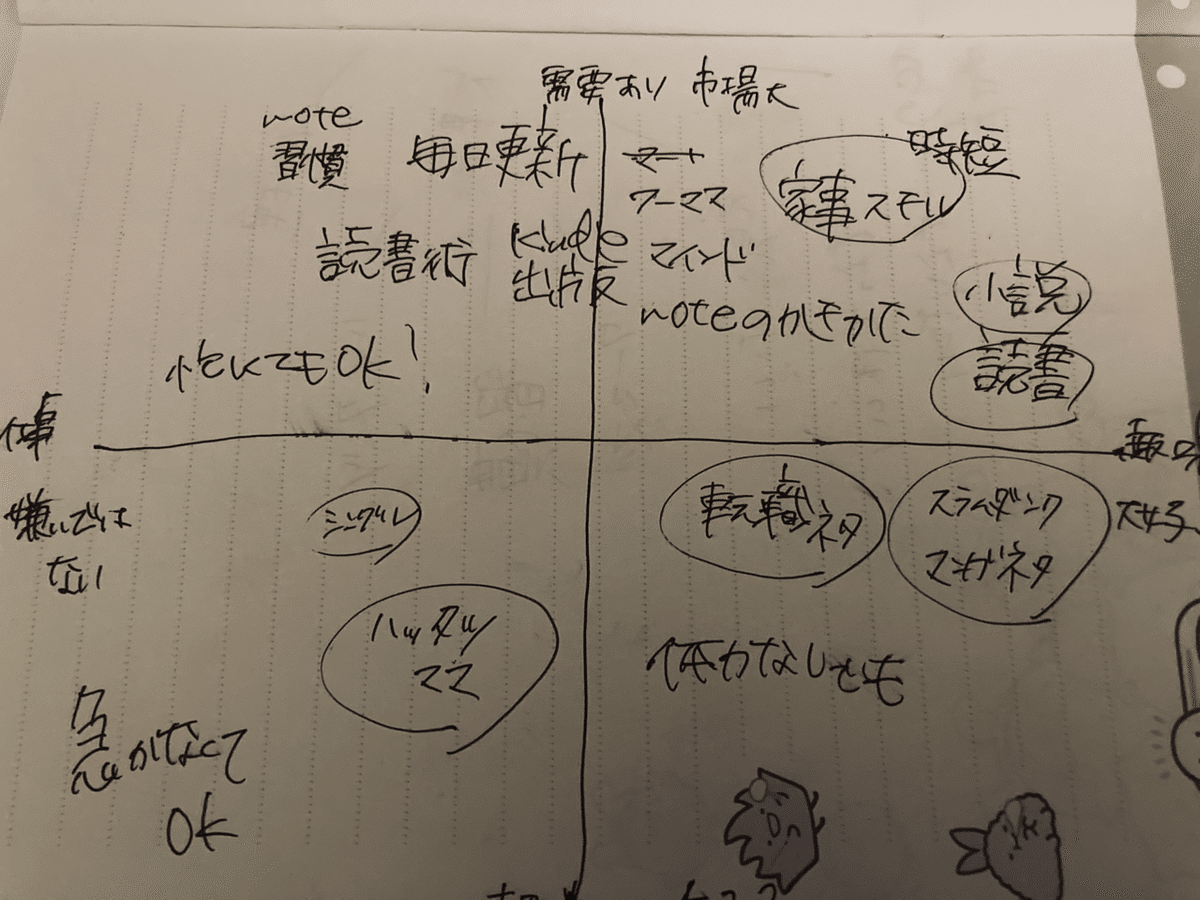 需要あり 市場大
note
習慣
毎日更新
マート
ワーママ
時短
家事スモル
読書術
Kindle
出版
マインド
noteのかきかた
小説
読書
忙しくてもOK!
仕事
趣味
嫌いでは
ない
シングル
転職ネタ
スラムダンク
マンガネタ
大好き
ハッタツ
ママ
体力なしでも
急がなくて
OK